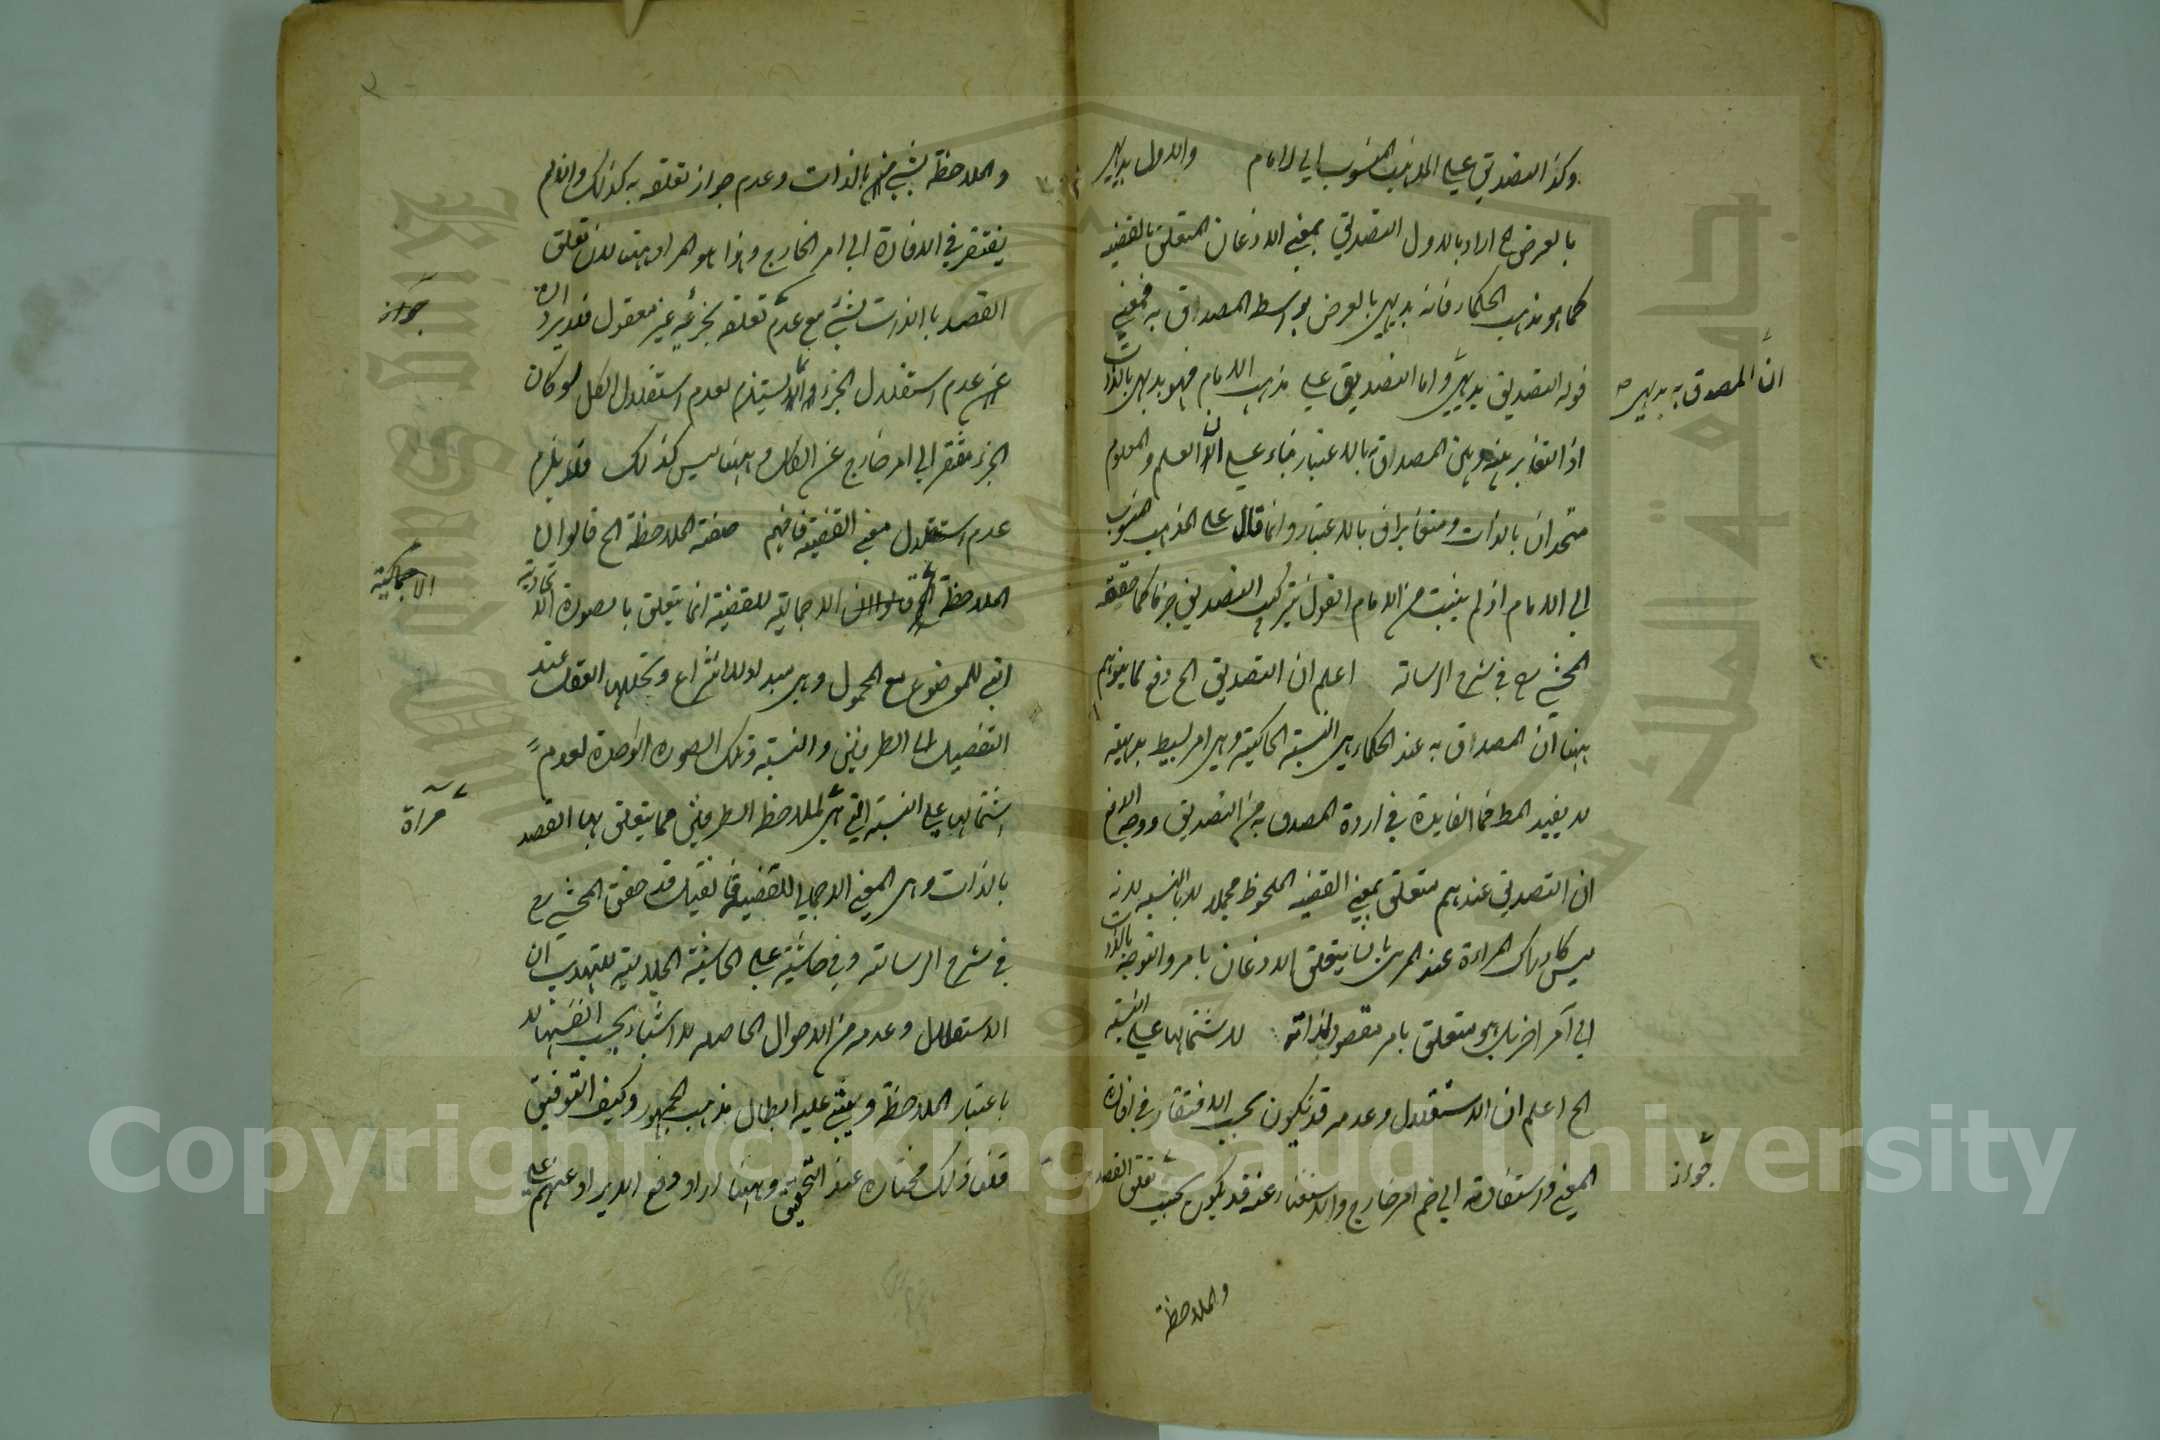 وكذا التصديق على المذهب المنسوب الى الامام والاول بديهي
بالعرض الخ اراد بالاول التصديق بمعنى الاذعان المتعلق بالقضية
كما هو مذهب الحكماء فانه بديهي بالعرض بواسطة المصداق به فمعنى
قوله التصديق بديهي واما التصديق على مذهب الامام فهو بديهي بالذات
اذ التغاير بينه وبين المصداق به بالاعتبار بناء على ان العلم والمعلوم
متحدان بالذات ومتغايران بالاعتبار وانما قال على المذهب المنسوب
الى الامام اذ لم يثبت من الامام القول بتركيب التصديق جزما كما حققه
المحشي رح في شرح الرسالة اعلم ان التصديق الخ دفع لما يتوهم
ههنا ان المصداق به عند الحكماء هي النسبة الحاكية وهي امر بسيط بداهته
لا يفيد المط فما الفايدة في ارادة المصدق به من التصديق ووجه الدفع
ان التصديق عندهم متعلق بمعنى القضية الملحوظ مجملا لا بالنسبة لانه
ليس كادراك المراءة عند المرئي بان يتعلق الاذعان بامر والتوجه بالذات
الى آمر اخر بل هو متعلق بامر مقصود لذاته لاشتمالها على النسبة
الخ اعلم ان الاستقلال وعدمه قد يكون بحسب الافتقار في افادة
المعنى واستفادته الى ضم امر خارج والاستغناء عنه قد يكون بحسب تعلق القصد
والملاحظة
ان المصدق به بديهي صح
جواز
والملاحظة بشيء بالذات وعدم جواز تعلقه به كذلك وان لم
يفتقر في الافادة الى امر الخارج وهذا هو المراد ههنا لان تعلق
القصد بالذات بشيء مع عدم تعلقه بجزئه غير معقول فلا يرد ان
عدم استقلال الجزء انما يستلزم لعدم استقلال الكل لو كان
الجزء مفتقرا الى امر خارج عن الكل وههنا ليس كذلك فلا يلزم
عدم استقلال معنى القضية فافهم صفته الملاحظة الخ قالوا ان
الملاحظة الاجمالية للقضية انما يتعلق بالصورة الاتحادية
التي للموضوع مع المحمول وهي مبدء للانتزاع وتحللها العقل عند
التفصيل الى الطرفين والنسبة وتلك الصورة الواحدة لعدم
اشتمالها على النسبة التي هي لملاحظة الطرفين مما يتعلق بها القصد
بالذات وهي المعنى الاجمالي للقضية فان قيل قد حقق المحشي رح
في شرح الرسالة وفي حاشيته على الحاشية الجلالية للتهذيب ان
الاستقلال وعدمه من الاحوال الحاصلة للاشياء بحسب انفسها لا
باعتبار الملاحظة ويبتنى عليه ابطال مذهب الجمهور وكيف التوفيق
قلنا ذلك مختاره عند التحقيق وههنا اراد دفع الايراد عنهم على
جواز
الاحاكية
مرآة
Copyright © King Saud University
King Saud University
جامعة الملك سعود
1957